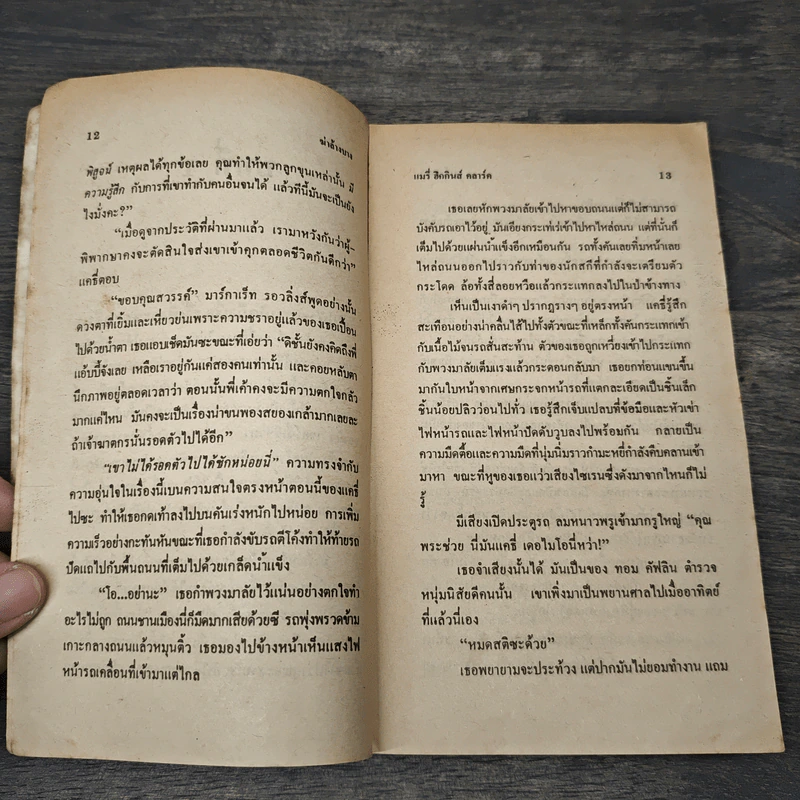 12
ฆ่าล้างบาง
พิสูจน์ เหตุผลได้ทุกข้อเลย คุณทำให้พวกลูกขุนเหล่านั้น มี
ความรู้สึก กับการที่เขาทำกับคนอื่นจนได้ แล้วทีนี้มันจะเป็นยัง
ไงมั่งคะ?”
“เมื่อดูจากประวัติที่ผ่านมาแล้ว เรามาหวังกันว่าผู้-
พิพากษาคงจะตัดสินใจส่งเขาเข้าคุกตลอดชีวิตกันดีกว่า”
แคธี่ตอบ
“ขอบคุณสวรรค์” มาร์กาเร็ท รอวลิ่งส์พูดอย่างนั้น
ดวงตาที่เยิ้มและเหี่ยวย่นเพราะความชราอยู่แล้วของเธอเปื้อน
ไปด้วยน้ำตา เธอแอบเช็ดมันซะขณะที่เอ่ยว่า “ดิชั้นยังคงคิดถึงพี่
แอ้บบี้จังเลย เหลือเราอยู่กันแค่สองคนเท่านั้น และคอยหลับตา
นึกภาพอยู่ตลอดเวลาว่า ตอนนั้นพี่เค้าคงจะมีความตกใจกลัว
มากแค่ไหน มันคงจะเป็นเรื่องน่าขนพองสยองเกล้ามากเลยละ
ถ้าเจ้าฆาตกรนั่นรอดตัวไปได้อีก”
“เขาไม่ได้รอดตัวไปได้ซักหน่อยนี่” ความทรงจำกับ
ความอุ่นใจในเรื่องนี้เบนความสนใจตรงหน้าตอนนี้ของแคธี่
ไปซะ ทำให้เธอกดเท้าลงไปบนคันเร่งหนักไปหน่อย การเพิ่ม
ความเร็วอย่างกะทันหันขณะที่เธอกำลังขับรถตีโค้งทำให้ท้ายรถ
ปัดแถไปกับพื้นถนนที่เต็มไปด้วยเกล็ดน้ำแข็ง
“โอ...อย่านะ” เธอกำพวงมาลัยไว้แน่นอย่างตกใจทำ
อะไรไม่ถูก ถนนชานเมืองนี่ก็มืดมากเสียด้วยซี รถพุ่งพรวดข้าม
เกาะกลางถนนแล้วหมุนติ้ว เธอมองไปข้างหน้าเห็นแสงไฟ
หน้ารถเคลื่อนที่เข้ามาแต่ไกล
แมรี่ ฮิกกินส์ คลาร์ค
13
เธอเลยหักพวงมาลัยเข้าไปหาขอบถนนแต่ก็ไม่สามารถ
บังคับรถเอาไว้อยู่ มันเอียงกระเท่เร่เข้าไปหาไหล่ถนน แต่ที่นั่นก็
เต็มไปด้วยแผ่นน้ำแข็งอีกเหมือนกัน รถทั้งคันเลยทิ่มหน้าเลย
ไหล่ถนนออกไปราวกับท่าของนักสกีที่กำลังจะเตรียมตัว
กระโดด ล้อทั้งสี่ลอยหวือแล้วกระแทกลงไปในป่าข้างทาง
เห็นเป็นเงาดำๆ ปรากฏรางๆ อยู่ตรงหน้า แคธี่รู้สึก
สะเทือนอย่างน่าคลื่นไส้ไปทั้งตัวขณะที่เหล็กทั้งคันกระแทกเข้า
กับเนื้อไม้จนรถสั่นสะท้าน ตัวของเธอถูกเหวี่ยงเข้าไปกระแทก
กับพวงมาลัยเต็มแรงแล้วกระดอนกลับมา เธอยกท่อนแขนขึ้น
มากันใบหน้าจากเศษกระจกหน้ารถที่แตกละเอียดเป็นชิ้นเล็ก
ชิ้นน้อยปลิวว่อนไปทั่ว เธอรู้สึกเจ็บแปลบที่ข้อมือและหัวเข่า
ไฟหน้ารถและไฟหน้าปัดดับวูบลงไปพร้อมกัน กลายเป็น
ความมืดตื้อและความมืดที่นุ่มนิ่มราวกำมะหยี่กำลังคืบคลานเข้า
มาหา ขณะที่หูของเธอแว่วเสียงไซเรนซึ่งดังมาจากไหนก็ไม่
รู้
มีเสียงเปิดประตูรถ ลมหนาวพรูเข้ามากรูใหญ่ “คุณ
พระช่วย นี่มันแคธี่ เดอไมโอนี่หว่า!”
เธอจำเสียงนั้นได้ มันเป็นของ ทอม คัฟลิน ตำรวจ
หนุ่มนิสัยดีคนนั้น เขาเพิ่งมาเป็นพยานศาลไปเมื่ออาทิตย์
ที่แล้วนี่เอง
“หมดสติซะด้วย”
เธอพยายามจะประท้วง แต่ปากมันไม่ยอมทำงาน แถม